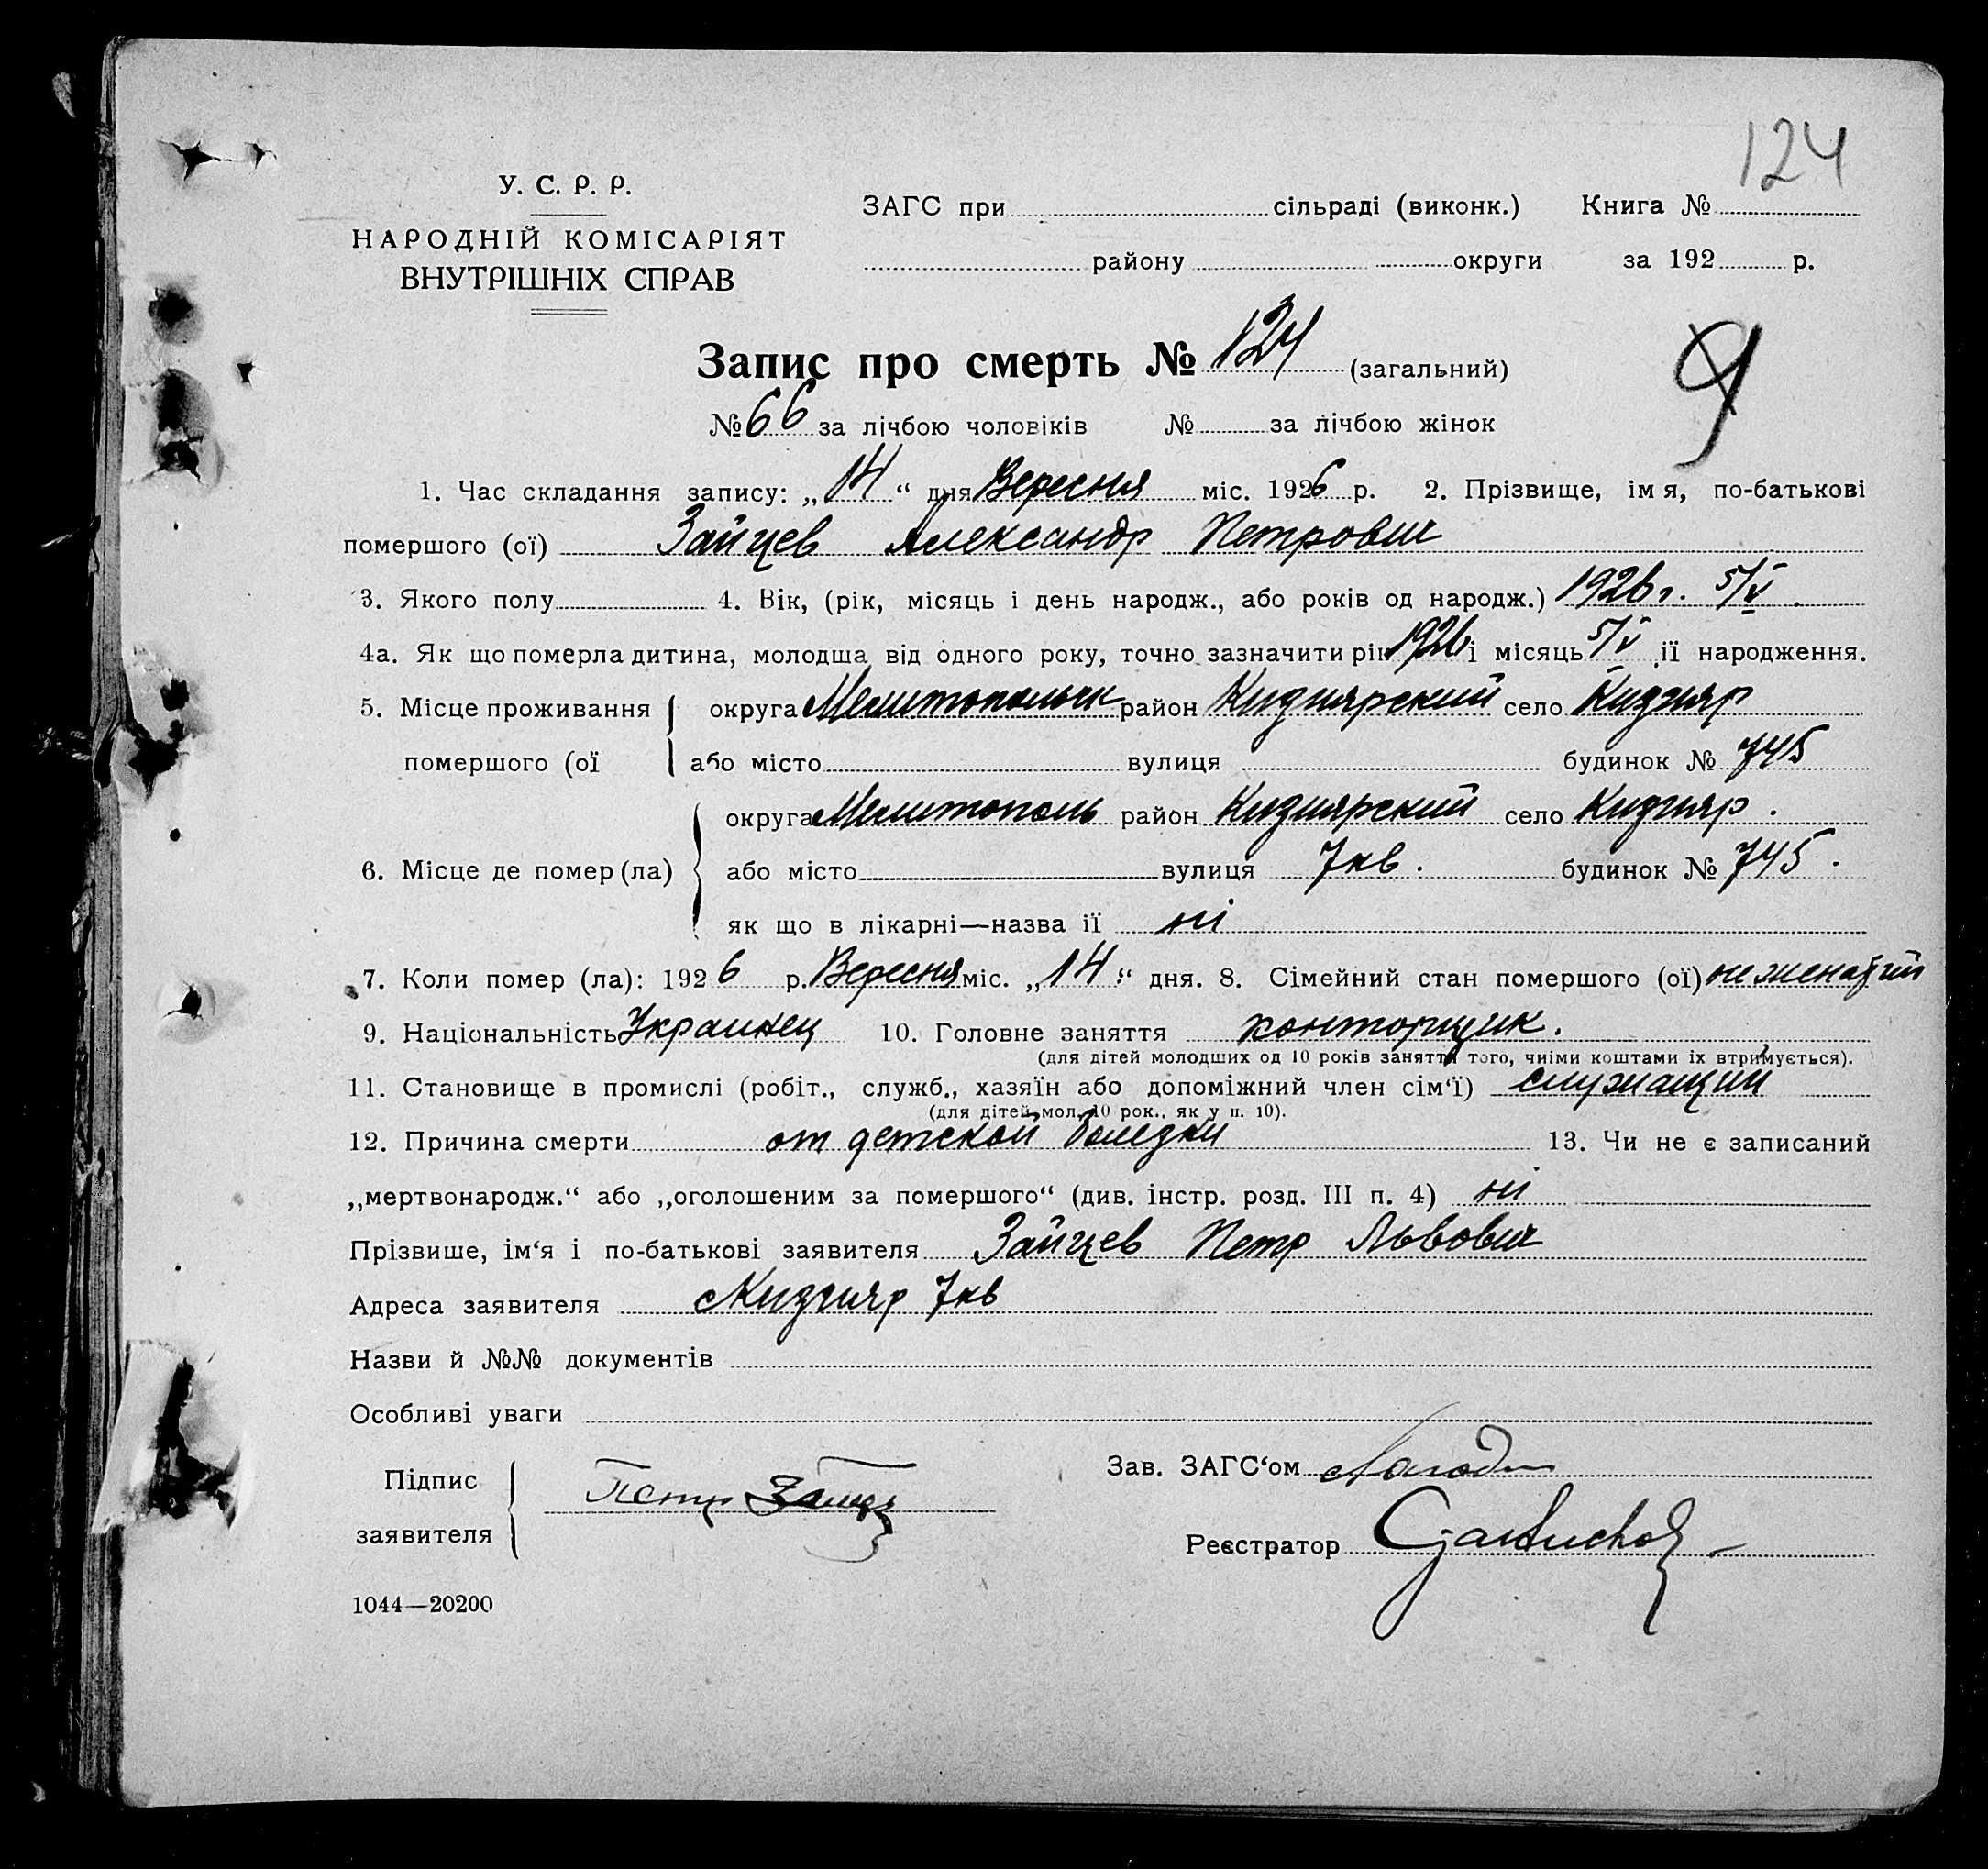 124
У. С. Р. Р.
НАРОДНІЙ КОМІСАРІЯТ
ВНУТРІШНІХ СПРАВ
ЗАГС при сільраді (виконк.) Книга №
району округи за 192 р.
Запис про смерть № 124 (загальний)
9
№ 66 за лічбою чоловіків № за лічбою жінок
1. Час складання запису: „14“ дня Вересня міс. 1926 р. 2. Прізвище, імя, по-батькові
помершого (ої) Зайцев Александр Петрович
3. Якого полу 4. Вік, (рік, місяць і день народж., або років од народж.) 1926 г. 5/V.
4а. Як що померла дитина, молодша від одного року, точно зазначити рік 1926 і місяць 5/V її народження.
5. Місце проживання округа район Кизиярский село Кизияр
помершого (ої або місто вулиця будинок № 745
округа Мелитополь район Кизиярский село Кизияр.
6. Місце де помер (ла) або місто вулиця 7 кв. будинок № 745.
як що в лікарні—назва її ні
7. Коли помер (ла): 1926 р. Вересня міс. „14“ дня. 8. Сімейний стан помершого (ої) не женатий
9. Національність Украинец 10. Головне заняття конторщик.
(для дітей молодших од 10 років заняття того, чиїми коштами їх втримується).
11. Становище в промислі (робіт., служб., хазяїн або допоміжний член сім‘ї) служащий
(для дітей мол. 10 рок., як у п. 10).
12. Причина смерти от детской болезни 13. Чи не є записаний
„мертвонародж.“ або „оголошеним за помершого“ (див. інстр. розд. III п. 4) ні
Прізвише, ім‘я і по-батькові заявителя Зайцев Петр Львович
Адреса заявителя Кизияр 7 кв
Назви й №№ документів
Особливі уваги
Підпис
заявителя Петр Зайцев
Зав. ЗАГС‘ом
Реєстратор
1044—20200